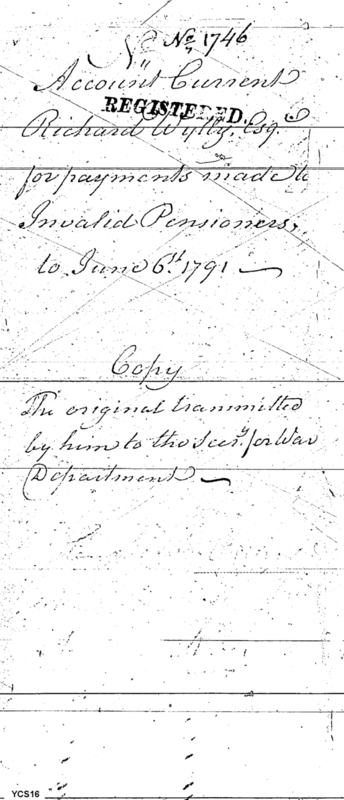 No. 1746
Account Current
REGISTERED.
Richard Wylly, Esq.
for payments made to
Invalid Pensioners,
to June 6th. 1791
Copy
The original transmitted
by him to the Secry. for War
Department
YCS16